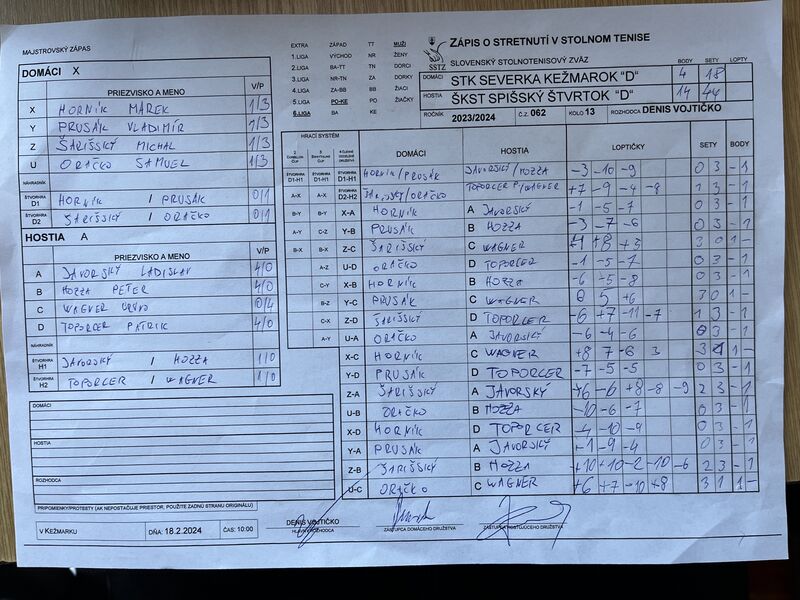 MAJSTROVSKÝ ZÁPAS
DOMÁCI X
PRIEZVISKO A MENO V/P
X HORNÍK MAREK 1/3
Y PRUSÁK VLADIMÍR 1/3
Z ŠARIŠSKÝ MICHAL 1/3
U ORAČKO SAMUEL 1/3
NÁHRADNÍK
ŠTVORHRA D1 HORNÍK / PRUSÁK 0/1
ŠTVORHRA D2 ŠARIŠSKÝ / ORAČKO 0/1
HOSTIA A
PRIEZVISKO A MENO V/P
A JAVORSKÝ LADISLAV 4/0
B HOZZA PETER 4/0
C WAGNER 0/4
D TOPORCER PATRIK 4/0
NÁHRADNÍK
ŠTVORHRA H1 JAVORSKÝ / HOZZA 1/0
ŠTVORHRA H2 TOPORCER / WAGNER 1/0
DOMÁCI
HOSTIA
ROZHODCA
PRIPOMIENKY/PROTESTY (AK NEPOSTAČUJE PRIESTOR, POUŽITE ZADNÚ STRANU ORIGINÁLU)
V KEŽMARKU DŇA: 18.2.2024 ČAS: 10:00
EXTRA ZÁPAD TT MUŽI
1.LIGA VÝCHOD NR ŽENY
2.LIGA BA-TT TN DORCI
3.LIGA NR-TN ZA DORKY
4.LIGA ZA-BB BB ŽIACI
5.LIGA PO-KE PO ŽIAČKY
6.LIGA BA KE
SSTZ
ZÁPIS O STRETNUTÍ V STOLNOM TENISE
SLOVENSKÝ STOLNOTENISOVÝ ZVÄZ BODY SETY LOPTY
DOMÁCI STK SEVERKA KEŽMAROK "D" 4 18
HOSTIA ŠKST SPIŠSKÝ ŠTVRTOK "D" 14 44
ROČNÍK 2023/2024 Č.Z. 062 KOLO 13 ROZHODCA DENIS VOJTIČKO
HRACÍ SYSTÉM DOMÁCI HOSTIA LOPTIČKY SETY BODY
ŠTVORHRA D1-H1 ŠTVORHRA D1-H1 ŠTVORHRA D1-H1 HORNÍK/PRUSÁK JAVORSKÝ/HOZZA -3 -10 -9 0 3 - 1
A-X A-X ŠTVORHRA D2-H2 ŠARIŠSKÝ/ORAČKO TOPORCER P/WAGNER +7 -9 -4 -8 1 3 - 1
B-Y B-Y X-A HORNÍK A JAVORSKÝ -1 -5 -7 0 3 - 1
A-Y C-Z Y-B PRUSÁK B HOZZA -3 -7 -6 0 3 - 1
B-X B-X Z-C ŠARIŠSKÝ C WAGNER +8 +3 3 0 1 -
A-Z U-D ORAČKO D TOPORCER -1 -5 -7 0 3 - 1
C-Y X-B HORNÍK B HOZZA -6 -5 -8 0 3 - 1
B-Z Y-C PRUSÁK C WAGNER 5 +6 3 0 1 -
C-X Z-D ŠARIŠSKÝ D TOPORCER -6 +7 -11 -7 1 3 - 1
A-Y U-A ORAČKO A JAVORSKÝ -6 -4 -6 0 3 - 1
X-C HORNÍK C WAGNER +8 7 -6 3 3 1 1 -
Y-D PRUSÁK D TOPORCER -7 -5 -5 0 3 - 1
Z-A ŠARIŠSKÝ A JAVORSKÝ +6 -6 +8 -8 -9 2 3 - 1
U-B ORAČKO B HOZZA -10 -6 -7 0 3 - 1
X-D HORNÍK D TOPORCER -4 -10 -9 0 3 - 1
Y-A PRUSÁK A JAVORSKÝ -1 -9 -4 0 3 - 1
Z-B ŠARIŠSKÝ B HOZZA +10 +10 -2 -10 -6 2 3 - 1
U-C ORAČKO C WAGNER +6 +7 -10 +8 3 1 1 -
DENIS VOJTIČKO
HLAVNÝ ROZHODCA ZÁSTUPCA DOMÁCEHO DRUŽSTVA ZÁSTUPCA HOSŤUJÚCEHO DRUŽSTVA